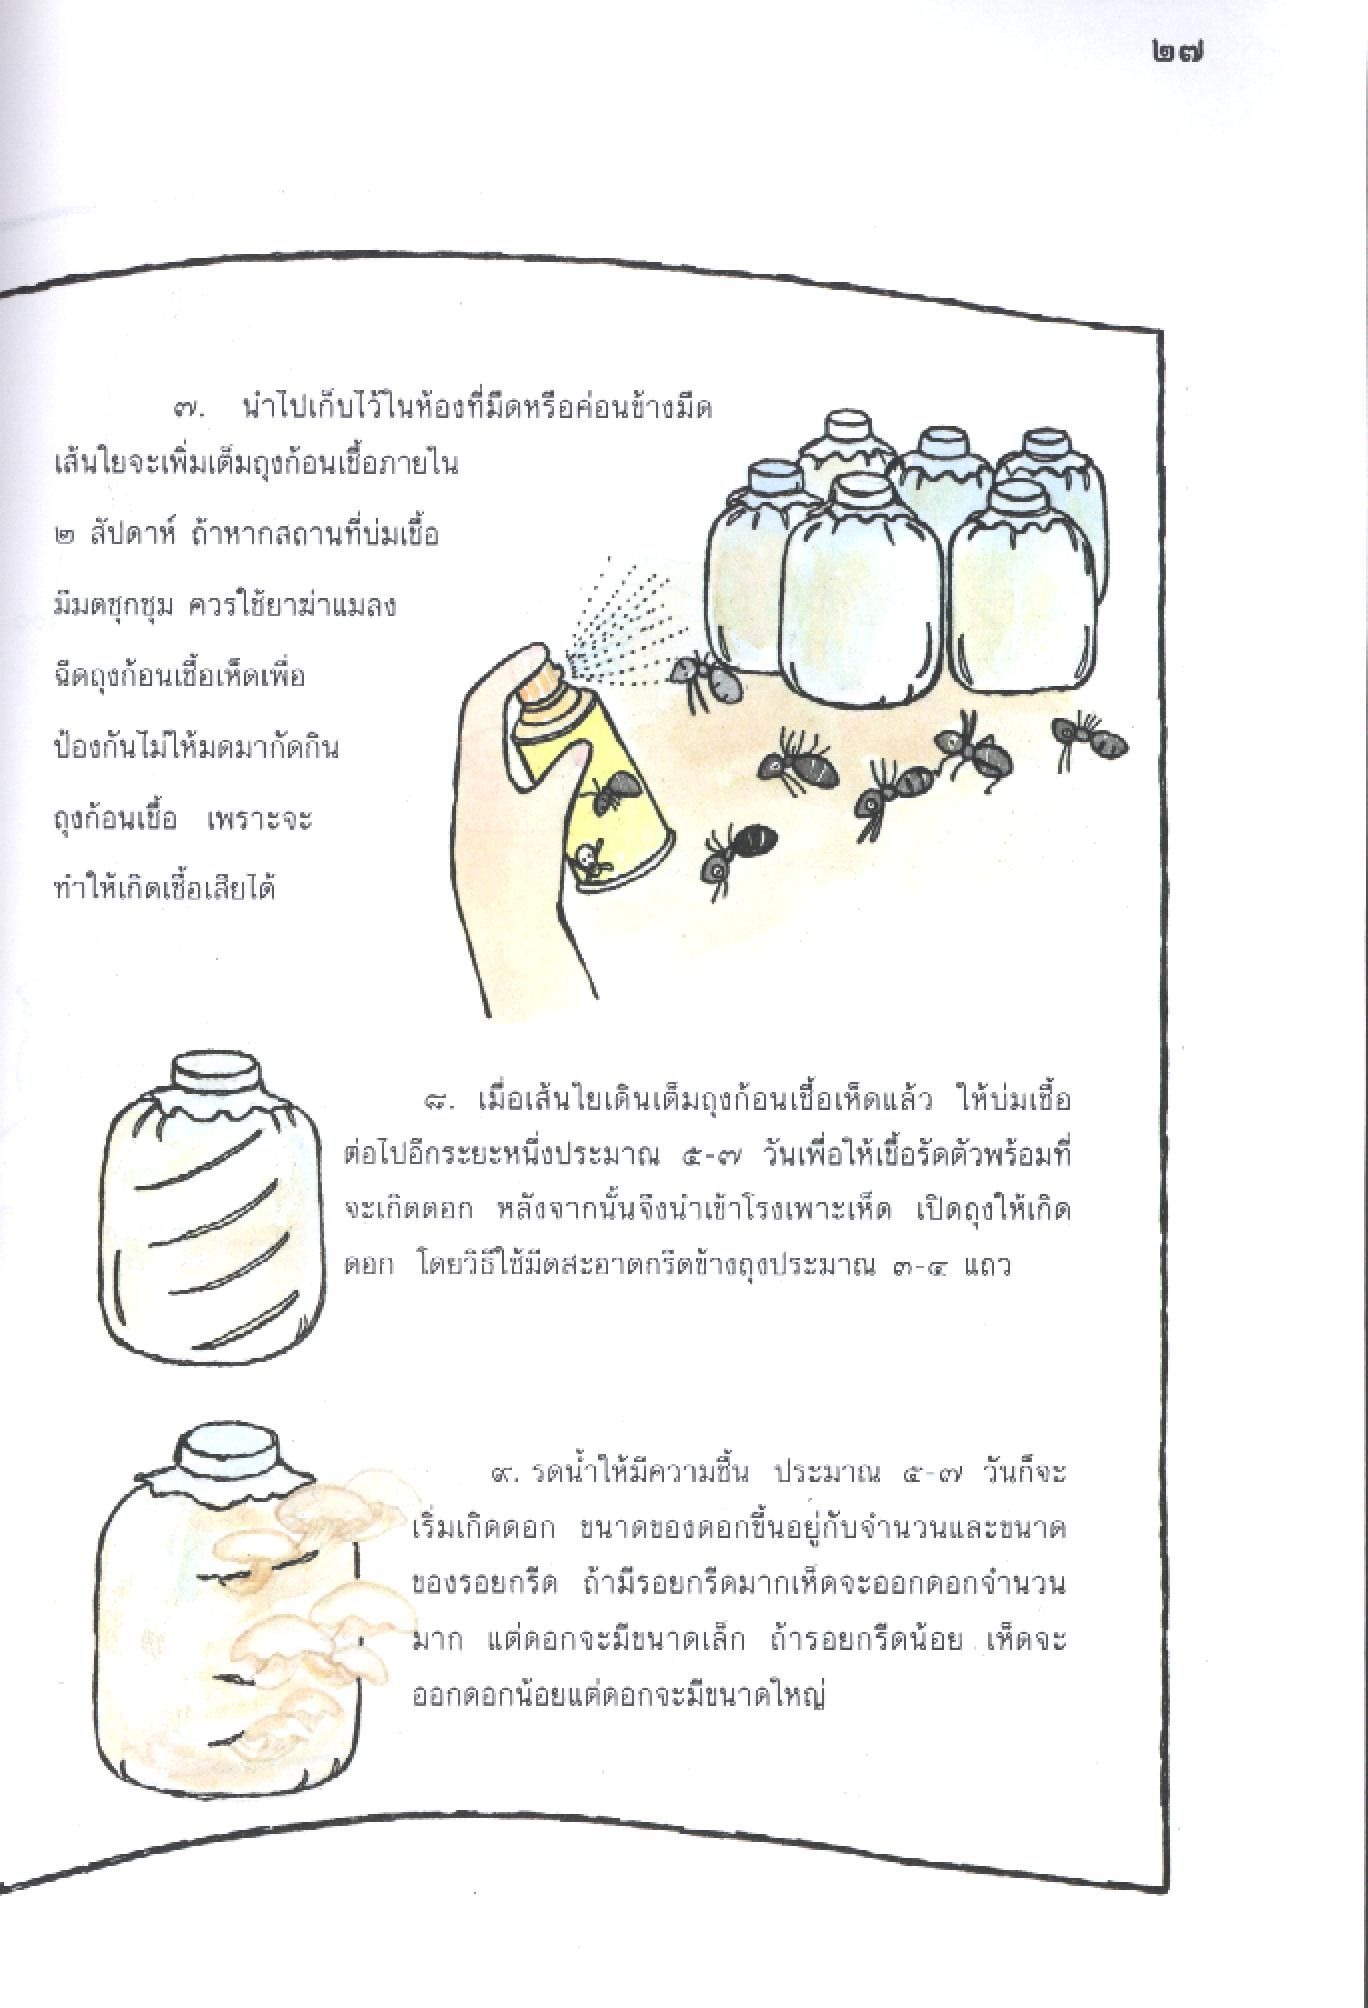 ๒๗
๗. นำไปเก็บไว้ในห้องที่มืดหรือค่อนข้างมืด
เส้นใยจะเพิ่มเต็มถุงก้อนเชื้อภายใน
๒ สัปดาห์ ถ้าหากสถานที่บ่มเชื้อ
มีมดชุกชุม ควรใช้ยาฆ่าแมลง
ฉีดถุงก้อนเชื้อเห็ดเพื่อ
ป้องกันไม่ให้มดมากัดกิน
ถุงก้อนเชื้อ เพราะจะ
ทำให้เกิดเชื้อเสียได้
๘. เมื่อเส้นใยเดินเต็มถุงก้อนเชื้อเห็ดแล้ว ให้บ่มเชื้อ
ต่อไปอีกระยะหนึ่งประมาณ ๕-๗ วันเพื่อให้เชื้อรัดตัวพร้อมที่
จะเกิดดอก หลังจากนั้นจึงนำเข้าโรงเพาะเห็ด เปิดถุงให้เกิด
ดอก โดยวิธีใช้มีดสะอาดกรีดข้างถุงประมาณ ๓-๔ แถว
๙. รดน้ำให้มีความชื้น ประมาณ ๕-๗ วันก็จะ
เริ่มเกิดดอก ขนาดของดอกขึ้นอยู่กับจำนวนและขนาด
ของรอยกรีด ถ้ามีรอยกรีดมากเห็ดจะออกดอกจำนวน
มาก แต่ดอกจะมีขนาดเล็ก ถ้ารอยกรีดน้อย เห็ดจะ
ออกดอกน้อยแต่ดอกจะมีขนาดใหญ่